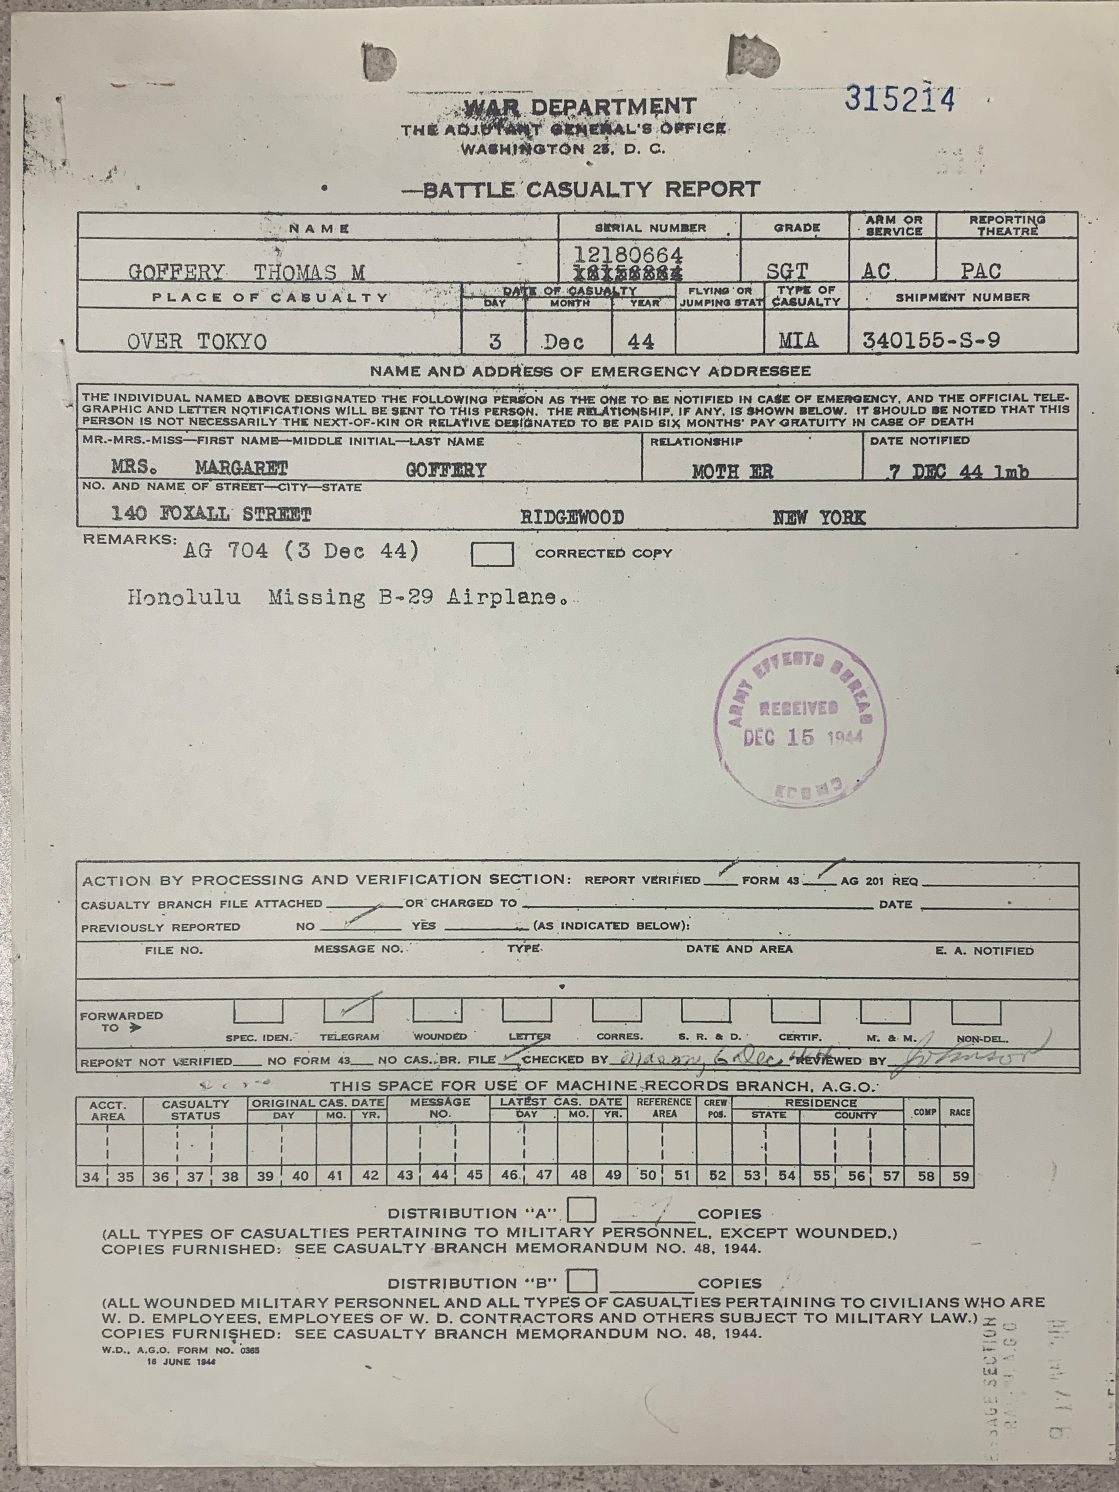 315214
WAR DEPARTMENT
THE ADJUTANT GENERAL'S OFFICE
WASHINGTON 25, D. C.
—BATTLE CASUALTY REPORT
NAME SERIAL NUMBER GRADE ARM OR SERVICE REPORTING THEATRE
12180664
GOFFERY THOMAS M SGT AC PAC
PLACE OF CASUALTY DATE OF CASUALTY DAY MONTH YEAR FLYING OR JUMPING STAT TYPE OF CASUALTY SHIPMENT NUMBER
OVER TOKYO 3 Dec 44 MIA 340155-S-9
NAME AND ADDRESS OF EMERGENCY ADDRESSEE
THE INDIVIDUAL NAMED ABOVE DESIGNATED THE FOLLOWING PERSON AS THE ONE TO BE NOTIFIED IN CASE OF EMERGENCY, AND THE OFFICIAL TELE-
GRAPHIC AND LETTER NOTIFICATIONS WILL BE SENT TO THIS PERSON. THE RELATIONSHIP, IF ANY, IS SHOWN BELOW. IT SHOULD BE NOTED THAT THIS
PERSON IS NOT NECESSARILY THE NEXT-OF-KIN OR RELATIVE DESIGNATED TO BE PAID SIX MONTHS' PAY GRATUITY IN CASE OF DEATH
MR.-MRS.-MISS—FIRST NAME—MIDDLE INITIAL—LAST NAME RELATIONSHIP DATE NOTIFIED
MRS. MARGARET GOFFERY MOTH ER 7 DEC 44 lmb
NO. AND NAME OF STREET—CITY—STATE
140 FOXALL STREET RIDGEWOOD NEW YORK
REMARKS: AG 704 (3 Dec 44) CORRECTED COPY
Honolulu Missing B-29 Airplane.
ARMY EFFECTS BUREAU
RECEIVED
DEC 15 1944
KCQMD
ACTION BY PROCESSING AND VERIFICATION SECTION: REPORT VERIFIED FORM 43 AG 201 REQ
CASUALTY BRANCH FILE ATTACHED OR CHARGED TO DATE
PREVIOUSLY REPORTED NO YES (AS INDICATED BELOW):
FILE NO. MESSAGE NO. TYPE DATE AND AREA E. A. NOTIFIED
FORWARDED TO
SPEC. IDEN. TELEGRAM WOUNDED LETTER CORRES. S. R. & D. CERTIF. M. & M. NON-DEL.
REPORT NOT VERIFIED NO FORM 43 NO CAS. BR. FILE CHECKED BY Mason, 6 Dec 44 REVIEWED BY Johnson
THIS SPACE FOR USE OF MACHINE RECORDS BRANCH, A.G.O.
ACCT. AREA CASUALTY STATUS ORIGINAL CAS. DATE DAY MO. YR. MESSAGE NO. LATEST CAS. DATE DAY MO. YR. REFERENCE AREA CREW POS. RESIDENCE STATE COUNTY COMP RACE
34 35 36 37 38 39 40 41 42 43 44 45 46 47 48 49 50 51 52 53 54 55 56 57 58 59
DISTRIBUTION "A" COPIES
(ALL TYPES OF CASUALTIES PERTAINING TO MILITARY PERSONNEL, EXCEPT WOUNDED.)
COPIES FURNISHED: SEE CASUALTY BRANCH MEMORANDUM NO. 48, 1944.
DISTRIBUTION "B" COPIES
(ALL WOUNDED MILITARY PERSONNEL AND ALL TYPES OF CASUALTIES PERTAINING TO CIVILIANS WHO ARE
W. D. EMPLOYEES, EMPLOYEES OF W. D. CONTRACTORS AND OTHERS SUBJECT TO MILITARY LAW.)
COPIES FURNISHED: SEE CASUALTY BRANCH MEMORANDUM NO. 48, 1944.
W.D., A.G.O. FORM NO. 0365
16 JUNE 1944
SECTION